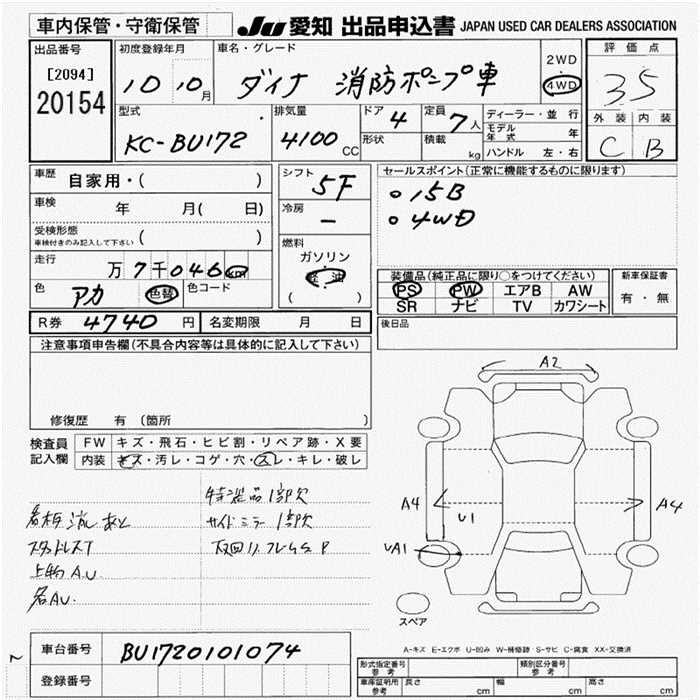 車内保管・守衛保管
JU 愛知 出品申込書 JAPAN USED CAR DEALERS ASSOCIATION
出品番号
[2094]
20154
初度登録年月
10 10月
車名・グレード
ダイナ 消防ポンプ車
2WD
・
4WD
評価点
3.5
外装 内装
C B
型式
KC-BU172
排気量
4100 CC
ドア 4
形状
定員 7人
積載 kg
ディーラー・並行
モデル年式 年
ハンドル 左・右
車歴 自家用・( )
車検 年 月( 日)
受検形態
車検付きのみ記入して下さい ( )
走行 万7千046km
色 アカ 色替 色コード
シフト 5F
冷房 ー
燃料
ガソリン
軽油
( )
セールスポイント(正常に機能するものに限ります)
○ 15B
○ 4WD
装備品(純正品に限り○をつけてください)
PS PW エアB AW
SR ナビ TV カワシート
新車保証書
有・無
R券 4740 円 名変期限 月 日
後日品
注意事項申告欄(不具合内容等は具体的に記入して下さい)
修復歴 有 (箇所 )
検査員記入欄
FW キズ・飛石・ヒビ割・リペア跡・X要
内装 キズ・汚レ・コゲ・穴・スレ・キレ・破レ
看板消しあと
スタッドレスT
上物A.U
名AU.
特装品1部欠
サイドミラー1部欠
下回りフレームSP
A2
A4
U1
A4
UA1
スペア
A-キズ E-エクボ U-凹み W-補修跡 S-サビ C-腐食 XX-交換済
車台番号 BU1720101074
登録番号
形式指定番号 参考
類別区分番号 参考
車庫証明用 参考 長さ cm 幅 cm 高さ cm